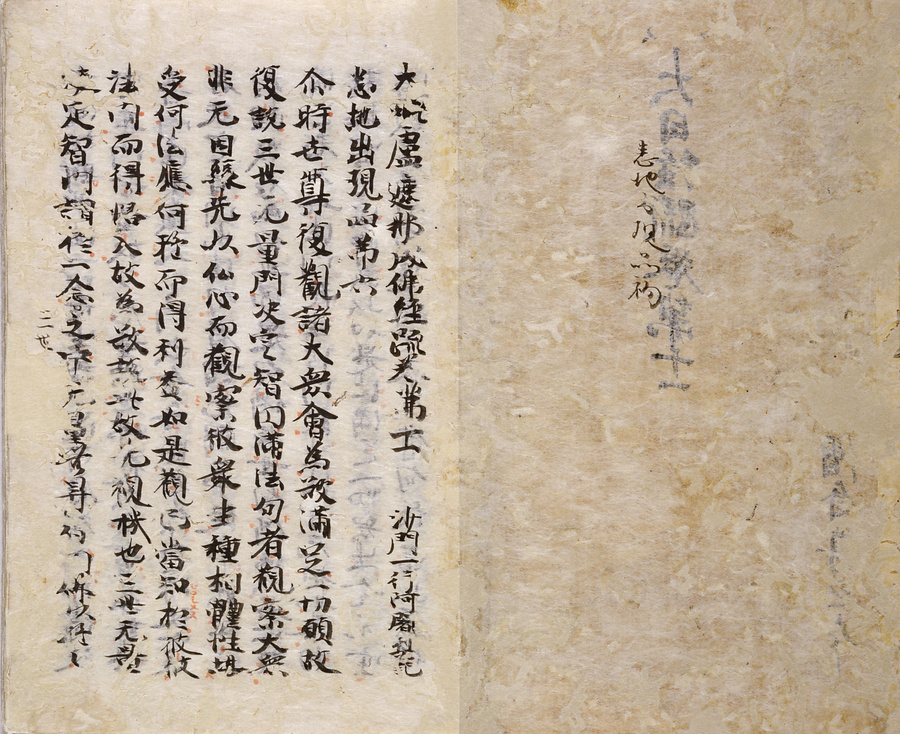 悉地出現品初
大毗盧遮那成佛經疏卷第十一 沙門一行阿闍梨記
悉地出現品第六
尒時世尊復觀諸大衆會為欲滿足一切願故
復說三世无量門决定智圓滿法句者觀察大衆
非无因緣先以仏心而觀察彼衆生種種體性堪
受何法應何所行而得利益如是觀已當知於彼彼
法門而得悟入故為 此故先觀機也三世无量
决定智門謂於一念之中无量
三世